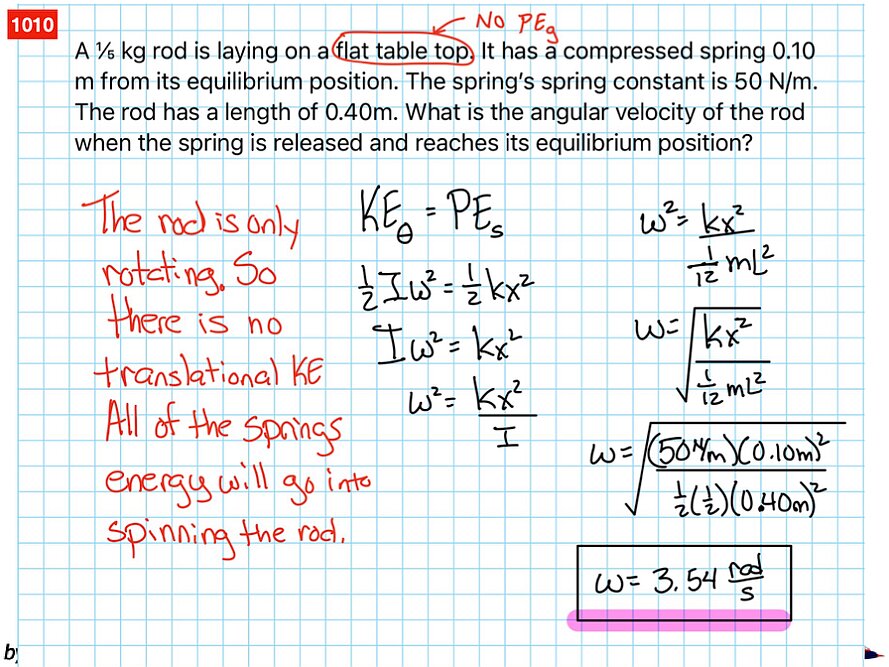 1010
NO PEg
A ⅕ kg rod is laying on a flat table top. It has a compressed spring 0.10
m from its equilibrium position. The spring's spring constant is 50 N/m.
The rod has a length of 0.40m. What is the angular velocity of the rod
when the spring is released and reaches its equilibrium position?
The rod is only
rotating. So
there is no
translational KE
All of the springs
energy will go into
spinning the rod.
KE_θ = PE_s
½ I ω² = ½ kx²
I ω² = kx²
ω² = kx² / I
ω² = kx² / (1/12 mL²)
ω = √(kx² / (1/12 mL²))
ω = √((50 N/m)(0.10m)² / (½(½)(0.40m)²))
ω = 3.54 rad/s